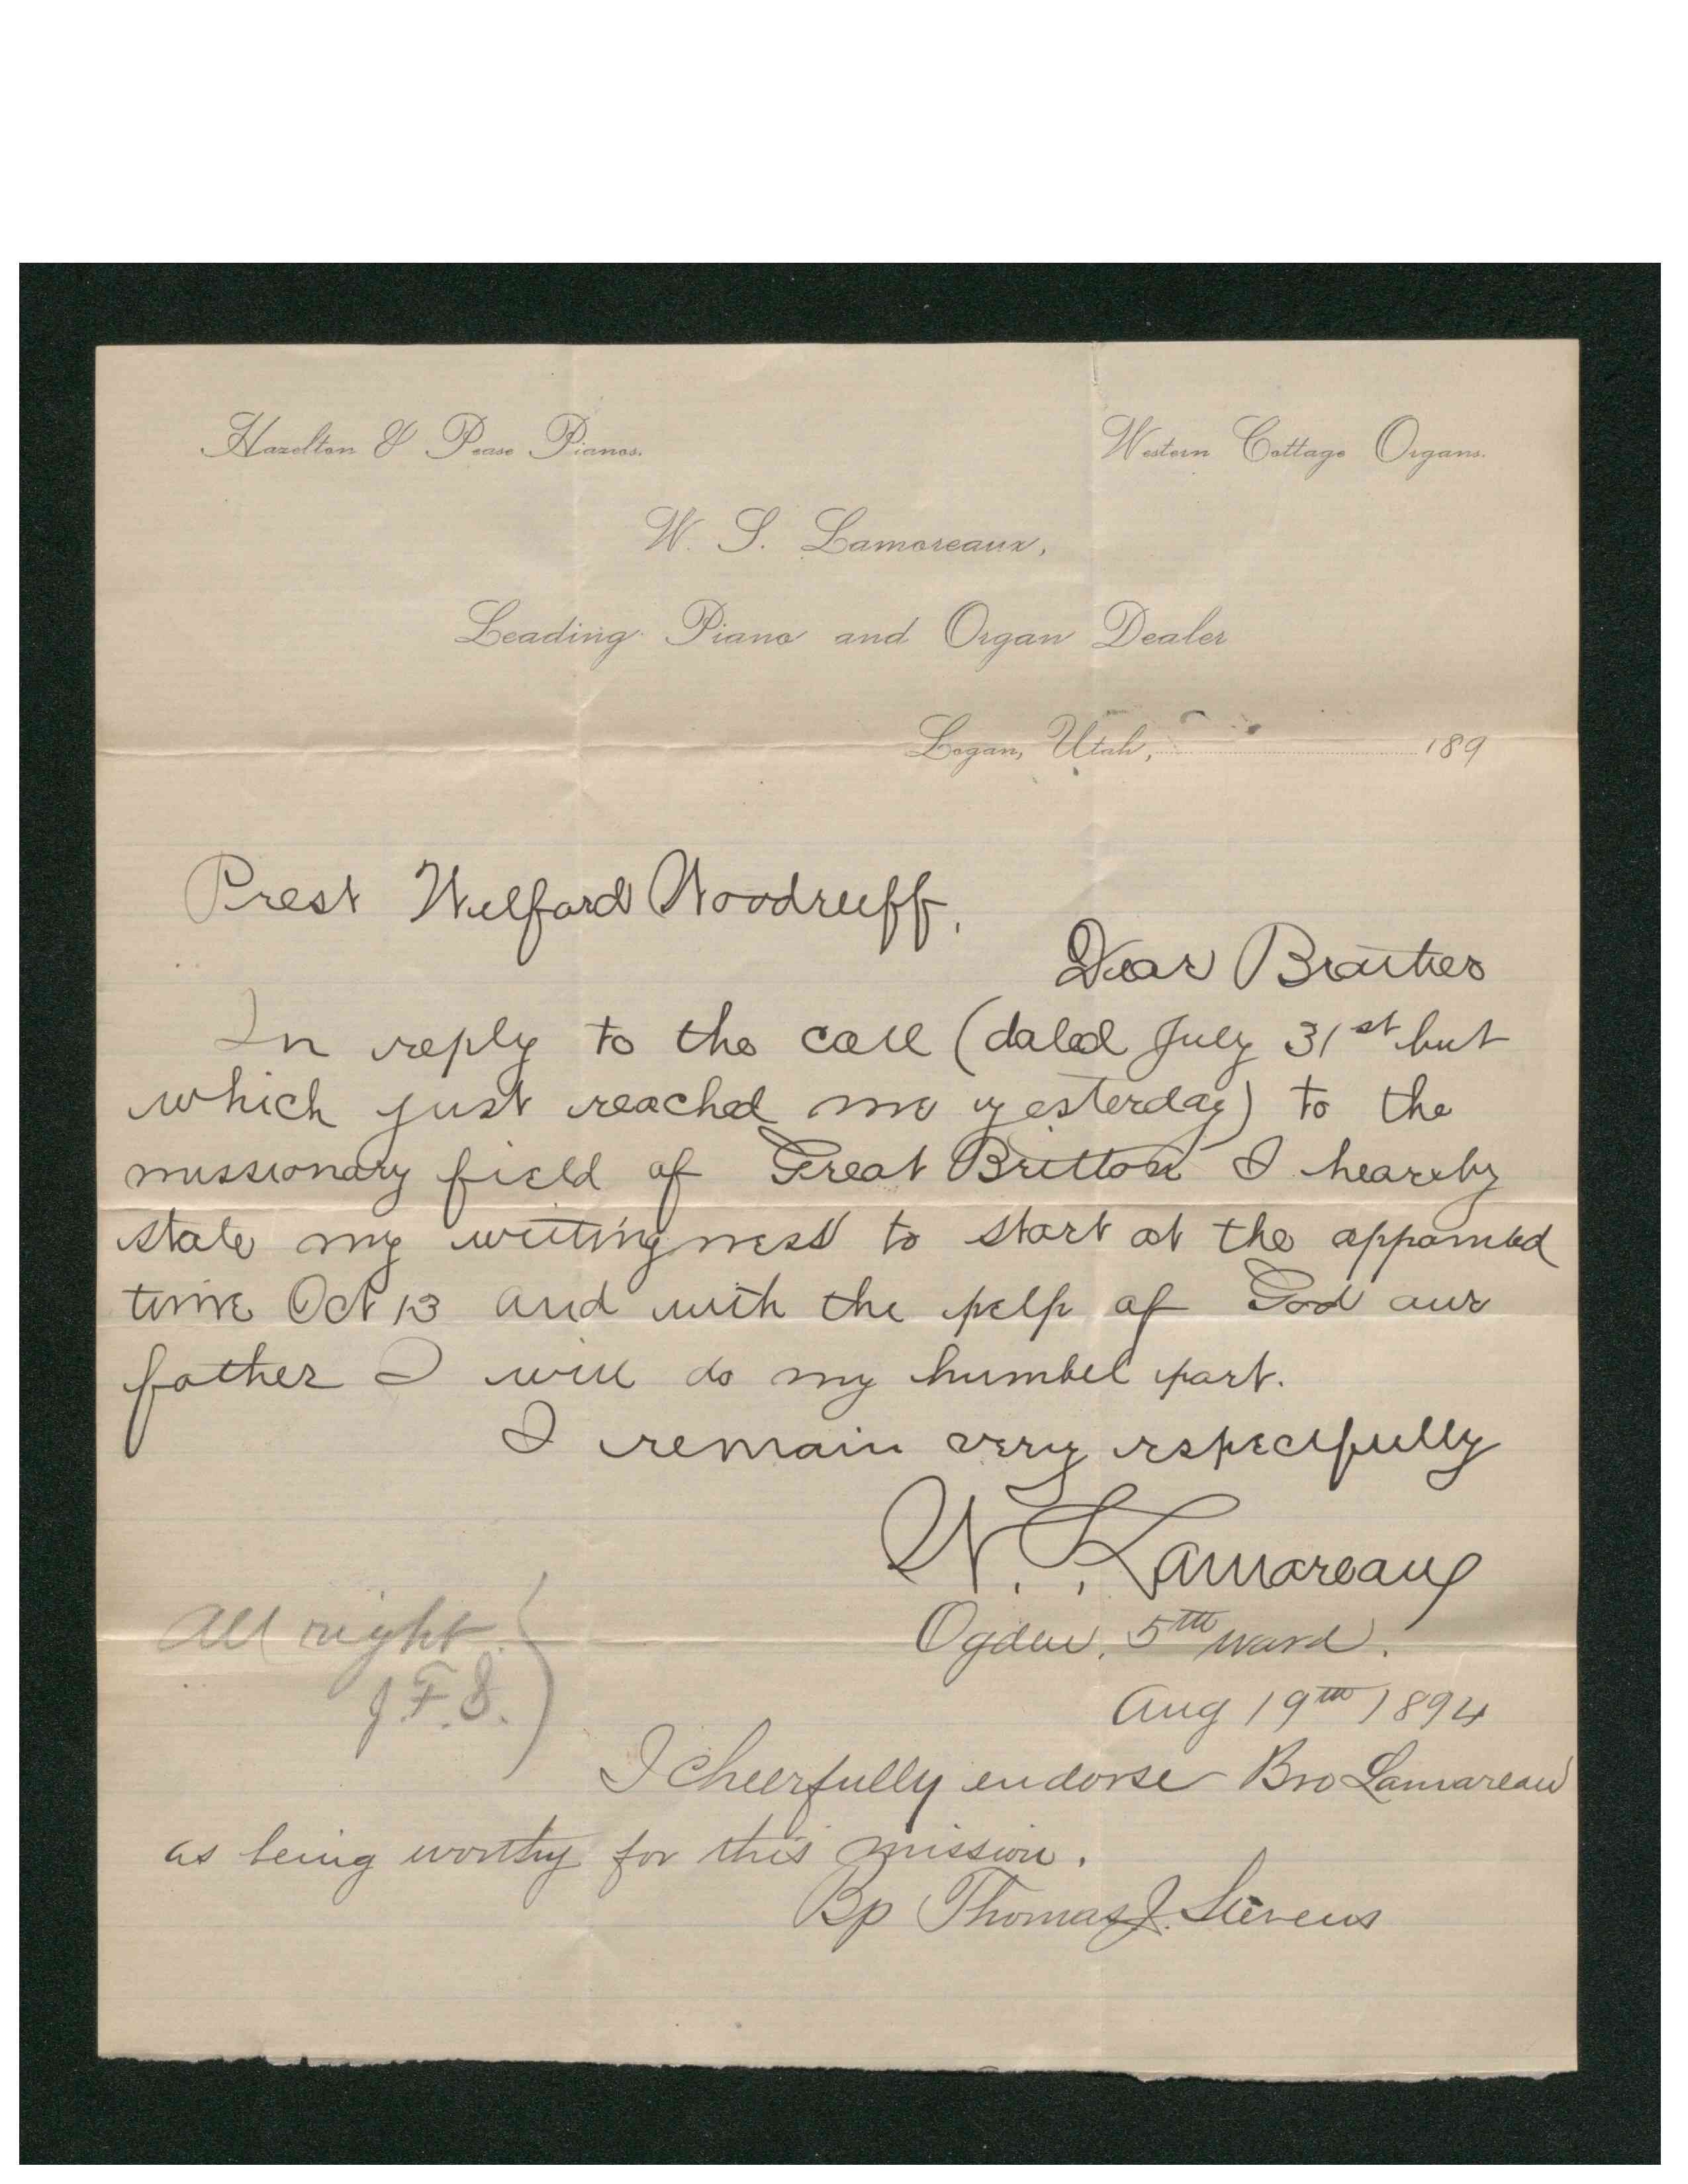 Hazelton & Pease Pianos.
Western Cottage Organs.
W. S. Lamoreaux,
Leading Piano and Organ Dealer
Logan, Utah, 189
Prest Wilford Woodruff.
Dear Brother
In reply to the call (dated July 31st but
which just reached me yesterday) to the
missionary field of Great Britton I hearby
state my willingness to start at the appointed
time Oct 13 and with the help of God our
father I will do my humbel part.
I remain very respecfully
W. S. Lamoreaux
Ogden, 5th ward.
Aug 19th 1894
All right.
J. F. S.
I cheerfully endorse Bro Lamareau
as being worthy for this mission.
Bp Thomas J. Stevens